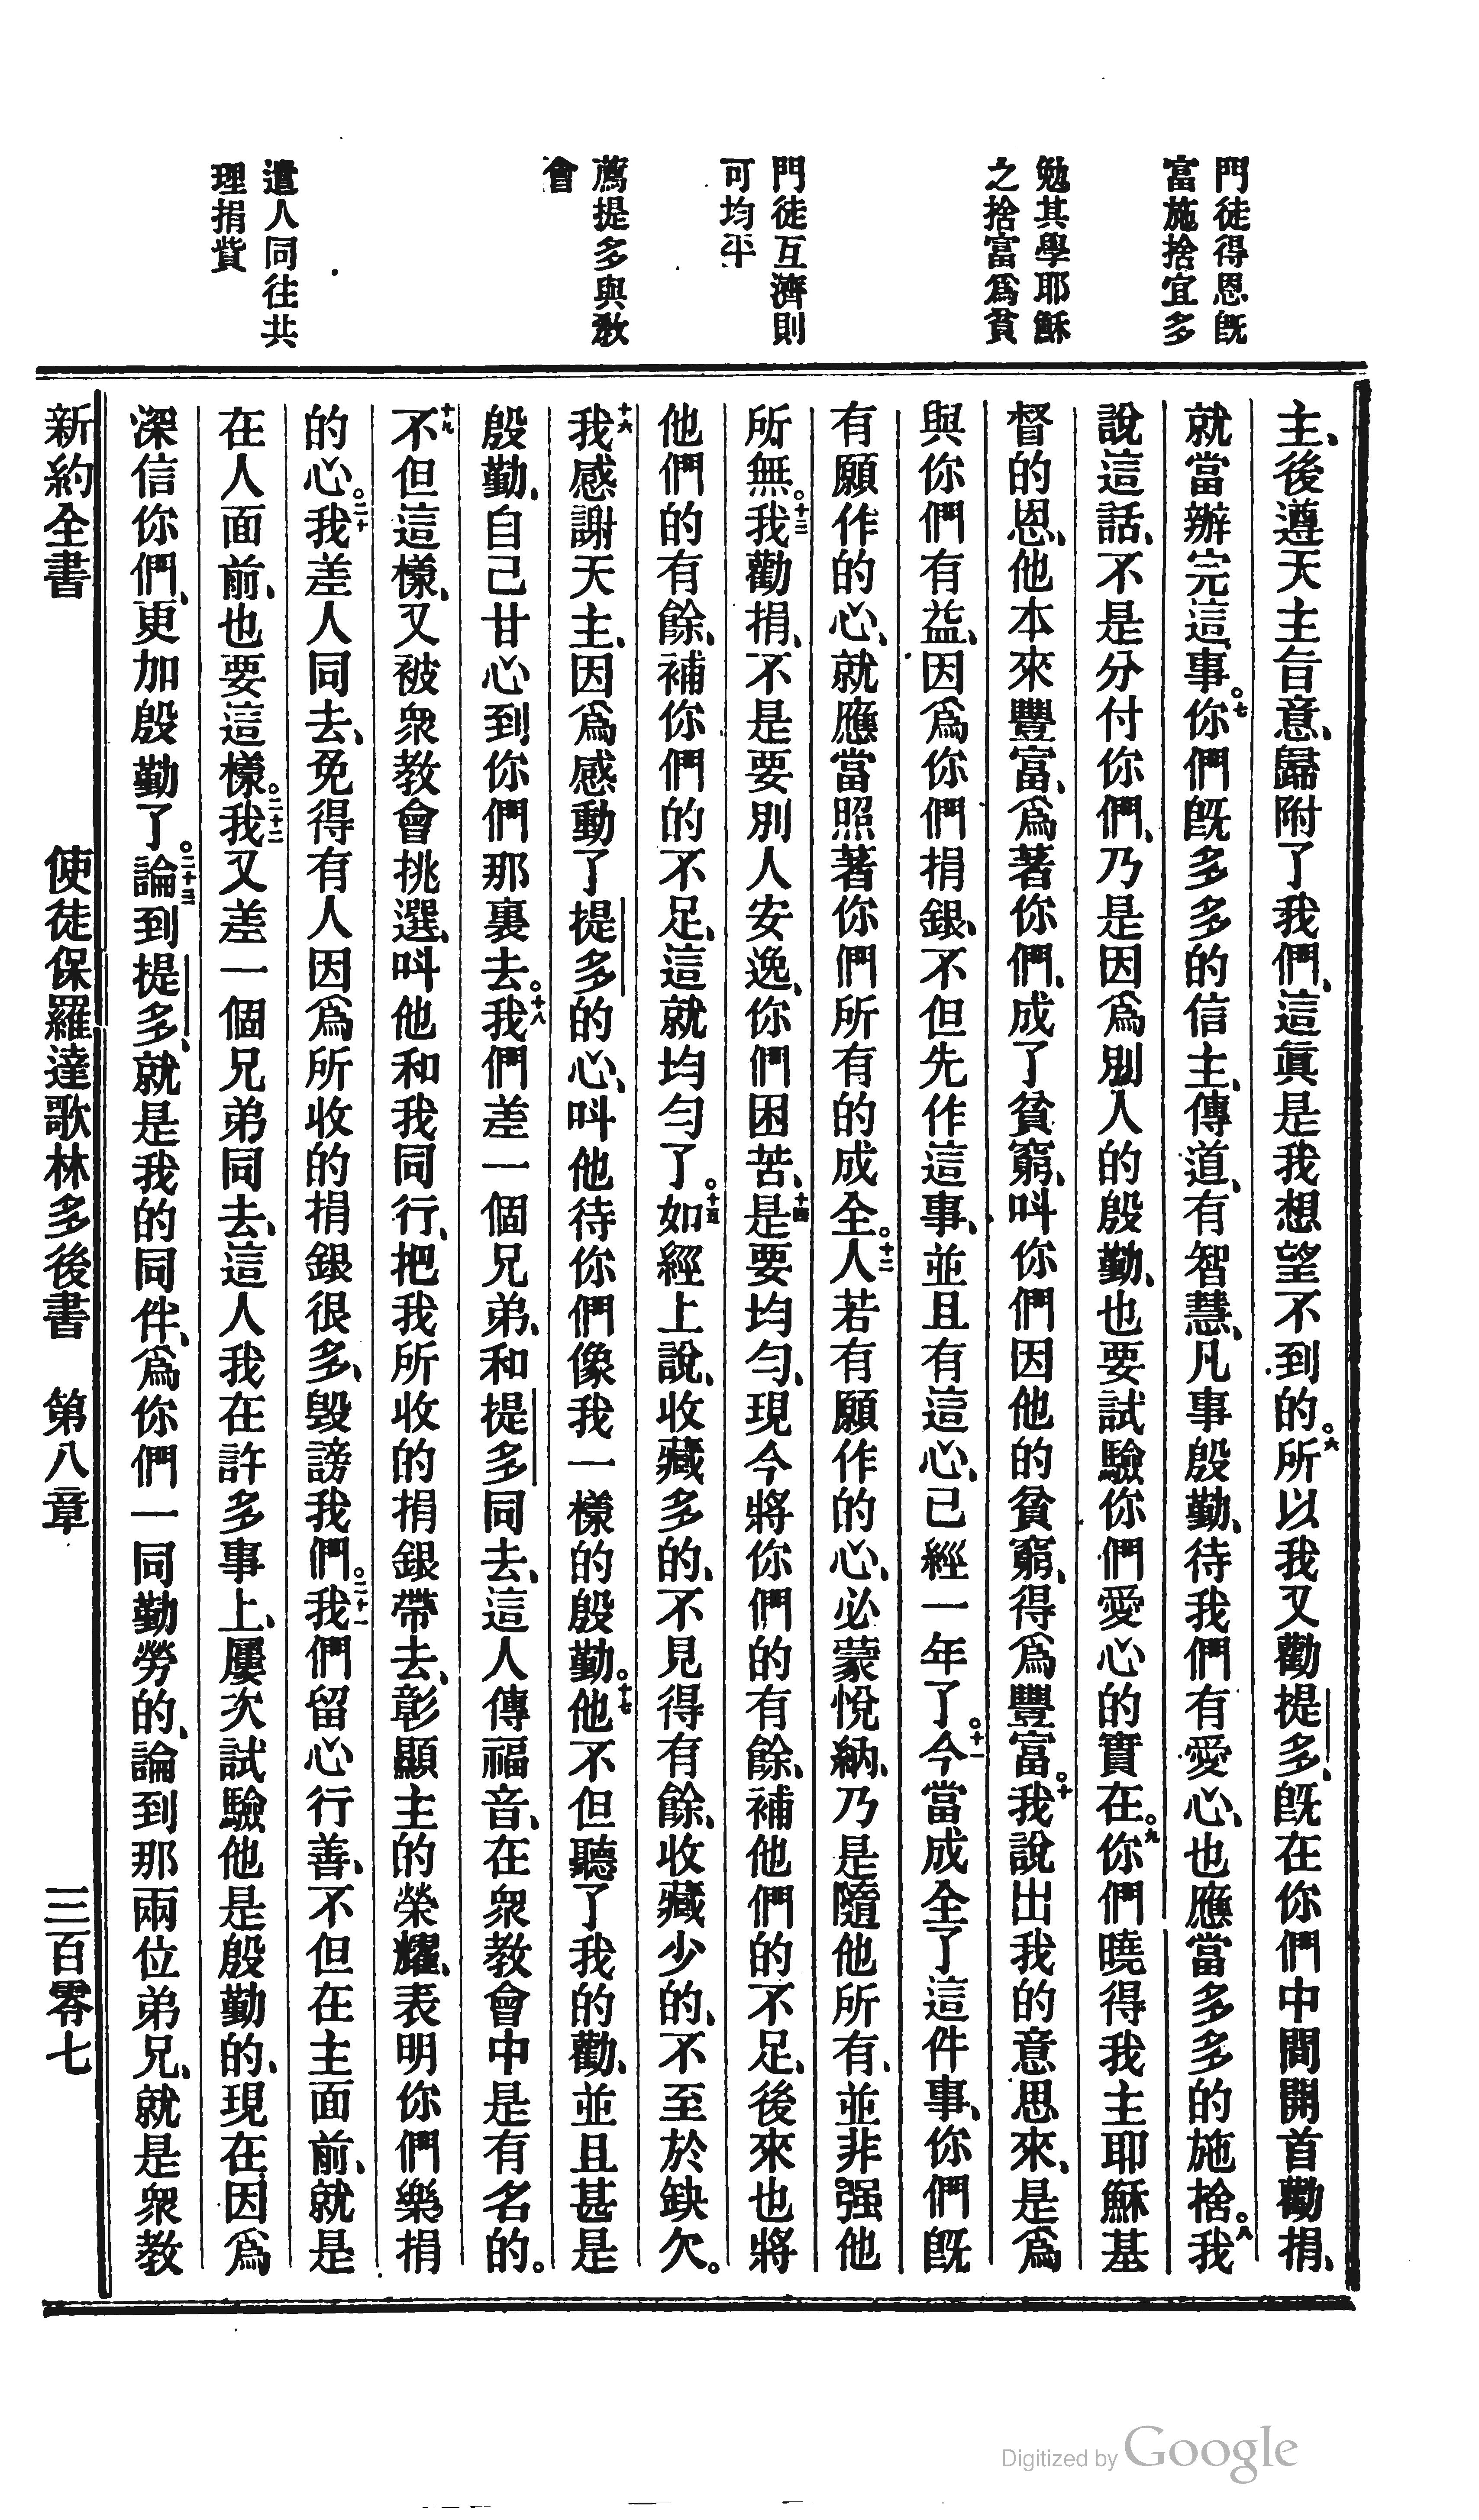 門徒得恩旣
富施捨宜多
勉其學耶穌
之捨富爲貧
門徒互濟則
可均平
薦提多與敎
會
遣人同往共
理捐貲
主、後遵天主旨意、歸附了我們、這眞是我想望不到的。六所以我又勸提多、旣在你們中間開首勸捐、
就當辦完這事。七你們旣多多的信主、傳道、有智慧、凡事殷勤、待我們有愛心、也應當多多的施捨。八我
說這話、不是分付你們、乃是因爲別人的殷勤、也要試驗你們愛心的實在。九你們曉得我主耶穌基
督的恩、他本來豐富、爲著你們、成了貧窮、呌你們因他的貧窮、得爲豐富。十我說出我的意思來、是爲
與你們有益、因爲你們捐銀、不但先作這事、並且有這心、已經一年了。十一今當成全了這件事、你們旣
有願作的心、就應當照著你們所有的成全。十二人若有願作的心、必蒙悅納、乃是隨他所有、並非强他
所無。十三我勸捐、不是要別人安逸、你們困苦、十四是要均勻、現今將你們的有餘、補他們的不足、後來也將
他們的有餘、補你們的不足、這就均勻了。十五如經上說、收藏多的、不見得有餘、收藏少的、不至於缺欠。
十六我感謝天主、因爲感動了提多的心、呌他待你們像我一樣的殷勤。十七他不但聽了我的勸、並且甚是
殷勤、自己甘心到你們那裏去。十八我們差一個兄弟、和提多同去、這人傳福音、在衆教會中是有名的。
十九不但這樣、又被衆教會挑選、呌他和我同行、把我所收的捐銀帶去、彰顯主的榮耀、表明你們樂捐
的心。二十我差人同去、免得有人因爲所收的捐銀很多、毀謗我們。二十一我們留心行善、不但在主面前、就是
在人面前、也要這樣。二十二我又差一個兄弟同去、這人我在許多事上、屢次試驗他是殷勤的、現在因爲
深信你們、更加殷勤了。二十三論到提多、就是我的同伴、爲你們一同勤勞的、論到那兩位弟兄、就是衆教
新約全書 使徒保羅達歌林多後書 第八章 三百零七
Digitized by Google